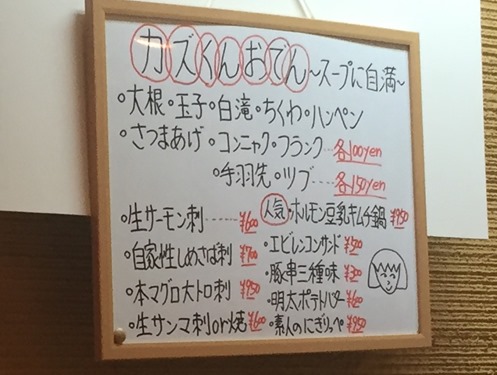 カズくんおでん～スープに自満～
・大根・玉子・白滝・ちくわ・ハンペン
・さつまあげ・コンニャク・フランク…各100yen
・手羽先・ツブ……各150yen
・生サーモン刺……¥600
・自家性しめさば刺 ¥700
・本マグロ大トロ刺 ¥950
・生サンマ刺or焼 ¥600
人気・ホルモン豆乳キムチ鍋 ¥950
・エビレンコンサンド ¥500
・豚串三種味 ¥300
・明太ポテトバター ¥600
・素人のにぎりっぺ ¥950